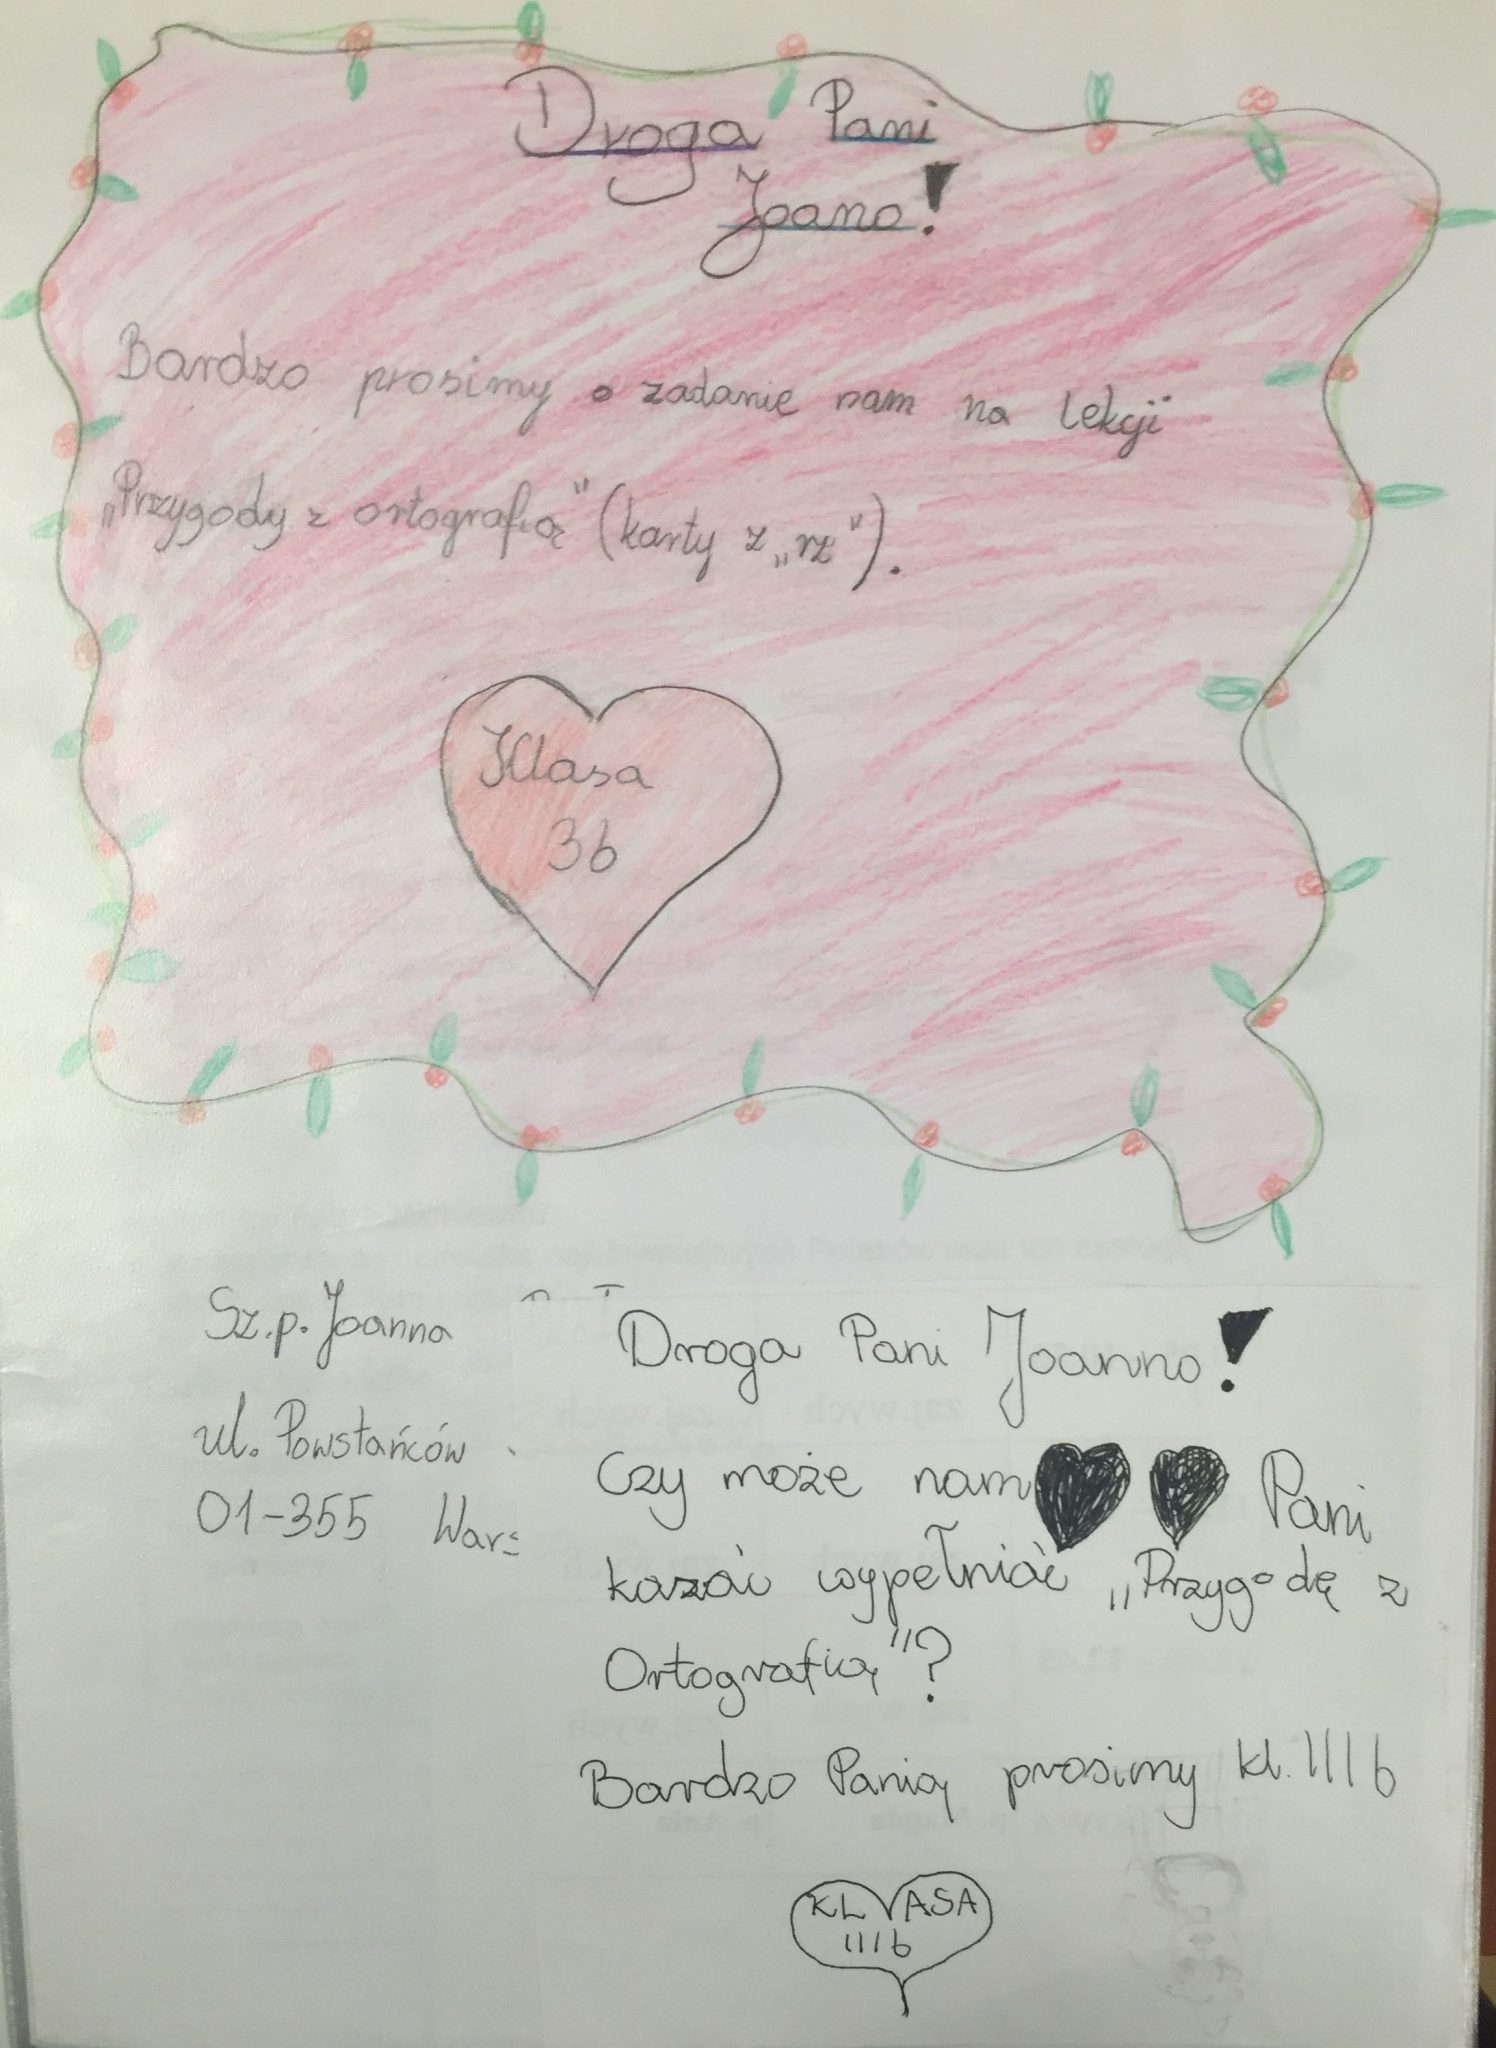 Droga Pani
Joano!
Bardzo prosimy o zadanie nam na lekcji
„Przygody z ortografią” (karty z „rz”).
Klasa
3b
Sz.p. Joanna
ul. Powstańców
01-355
Droga Pani Joanno!
Czy może nam Pani
kazać wypełniać „Przygodę z
Ortografią”?
Bardzo Panią prosimy kl. IIIb
KLASA
IIIb